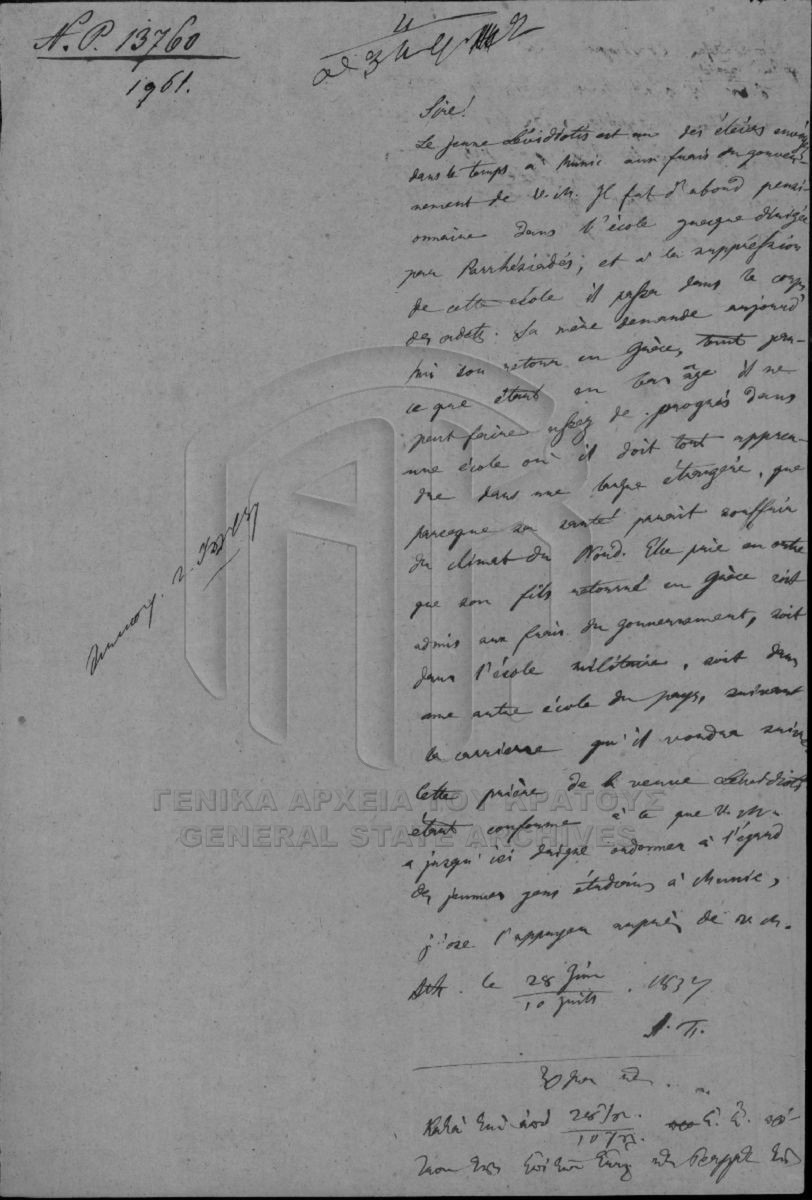 N. P. 13760
1961.
Sire!
Le jeune Lévidiotis est un des élèves envoyés
dans le temps à Munic aux frais du gouver-
nement de V. M. Il fut d'abord pensi-
onnaire dans l'école grecque dirigée
par Parrhésiadés; et à la suppression
de cette école il passa dans le corps
des cadets. Sa mère demande aujourd'
hui son retour en Grèce, tant par-
ce que étant en bas âge il ne
peut faire assez de progrès dans
une école où il doit tout appren-
dre dans une langue étrangère, que
parceque sa santé parait souffrir
du climat du Nord. Elle prie en outre
que son fils retourné en Grèce soit
admis aux frais du gouvernement, soit
dans l'école militaire, soit dans
une autre école du pays, suivant
la carrierre qu'il voudra suivre.
Cette prière de la veuve Lévidiotis
étant conforme à ce que V. M.
a jusqu'ici daigné ordonner à l'égard
des jeunes gens étudians à Munic,
j'ose l'appuyer auprès de V. M.
Ath. le 28 Juin / 10 Juill. 1837
Α. Π.
Κατὰ τὴν ἀπὸ 28 / 10
ΓΕΝΙΚΑ ΑΡΧΕΙΑ ΤΟΥ ΚΡΑΤΟΥΣ
GENERAL STATE ARCHIVES